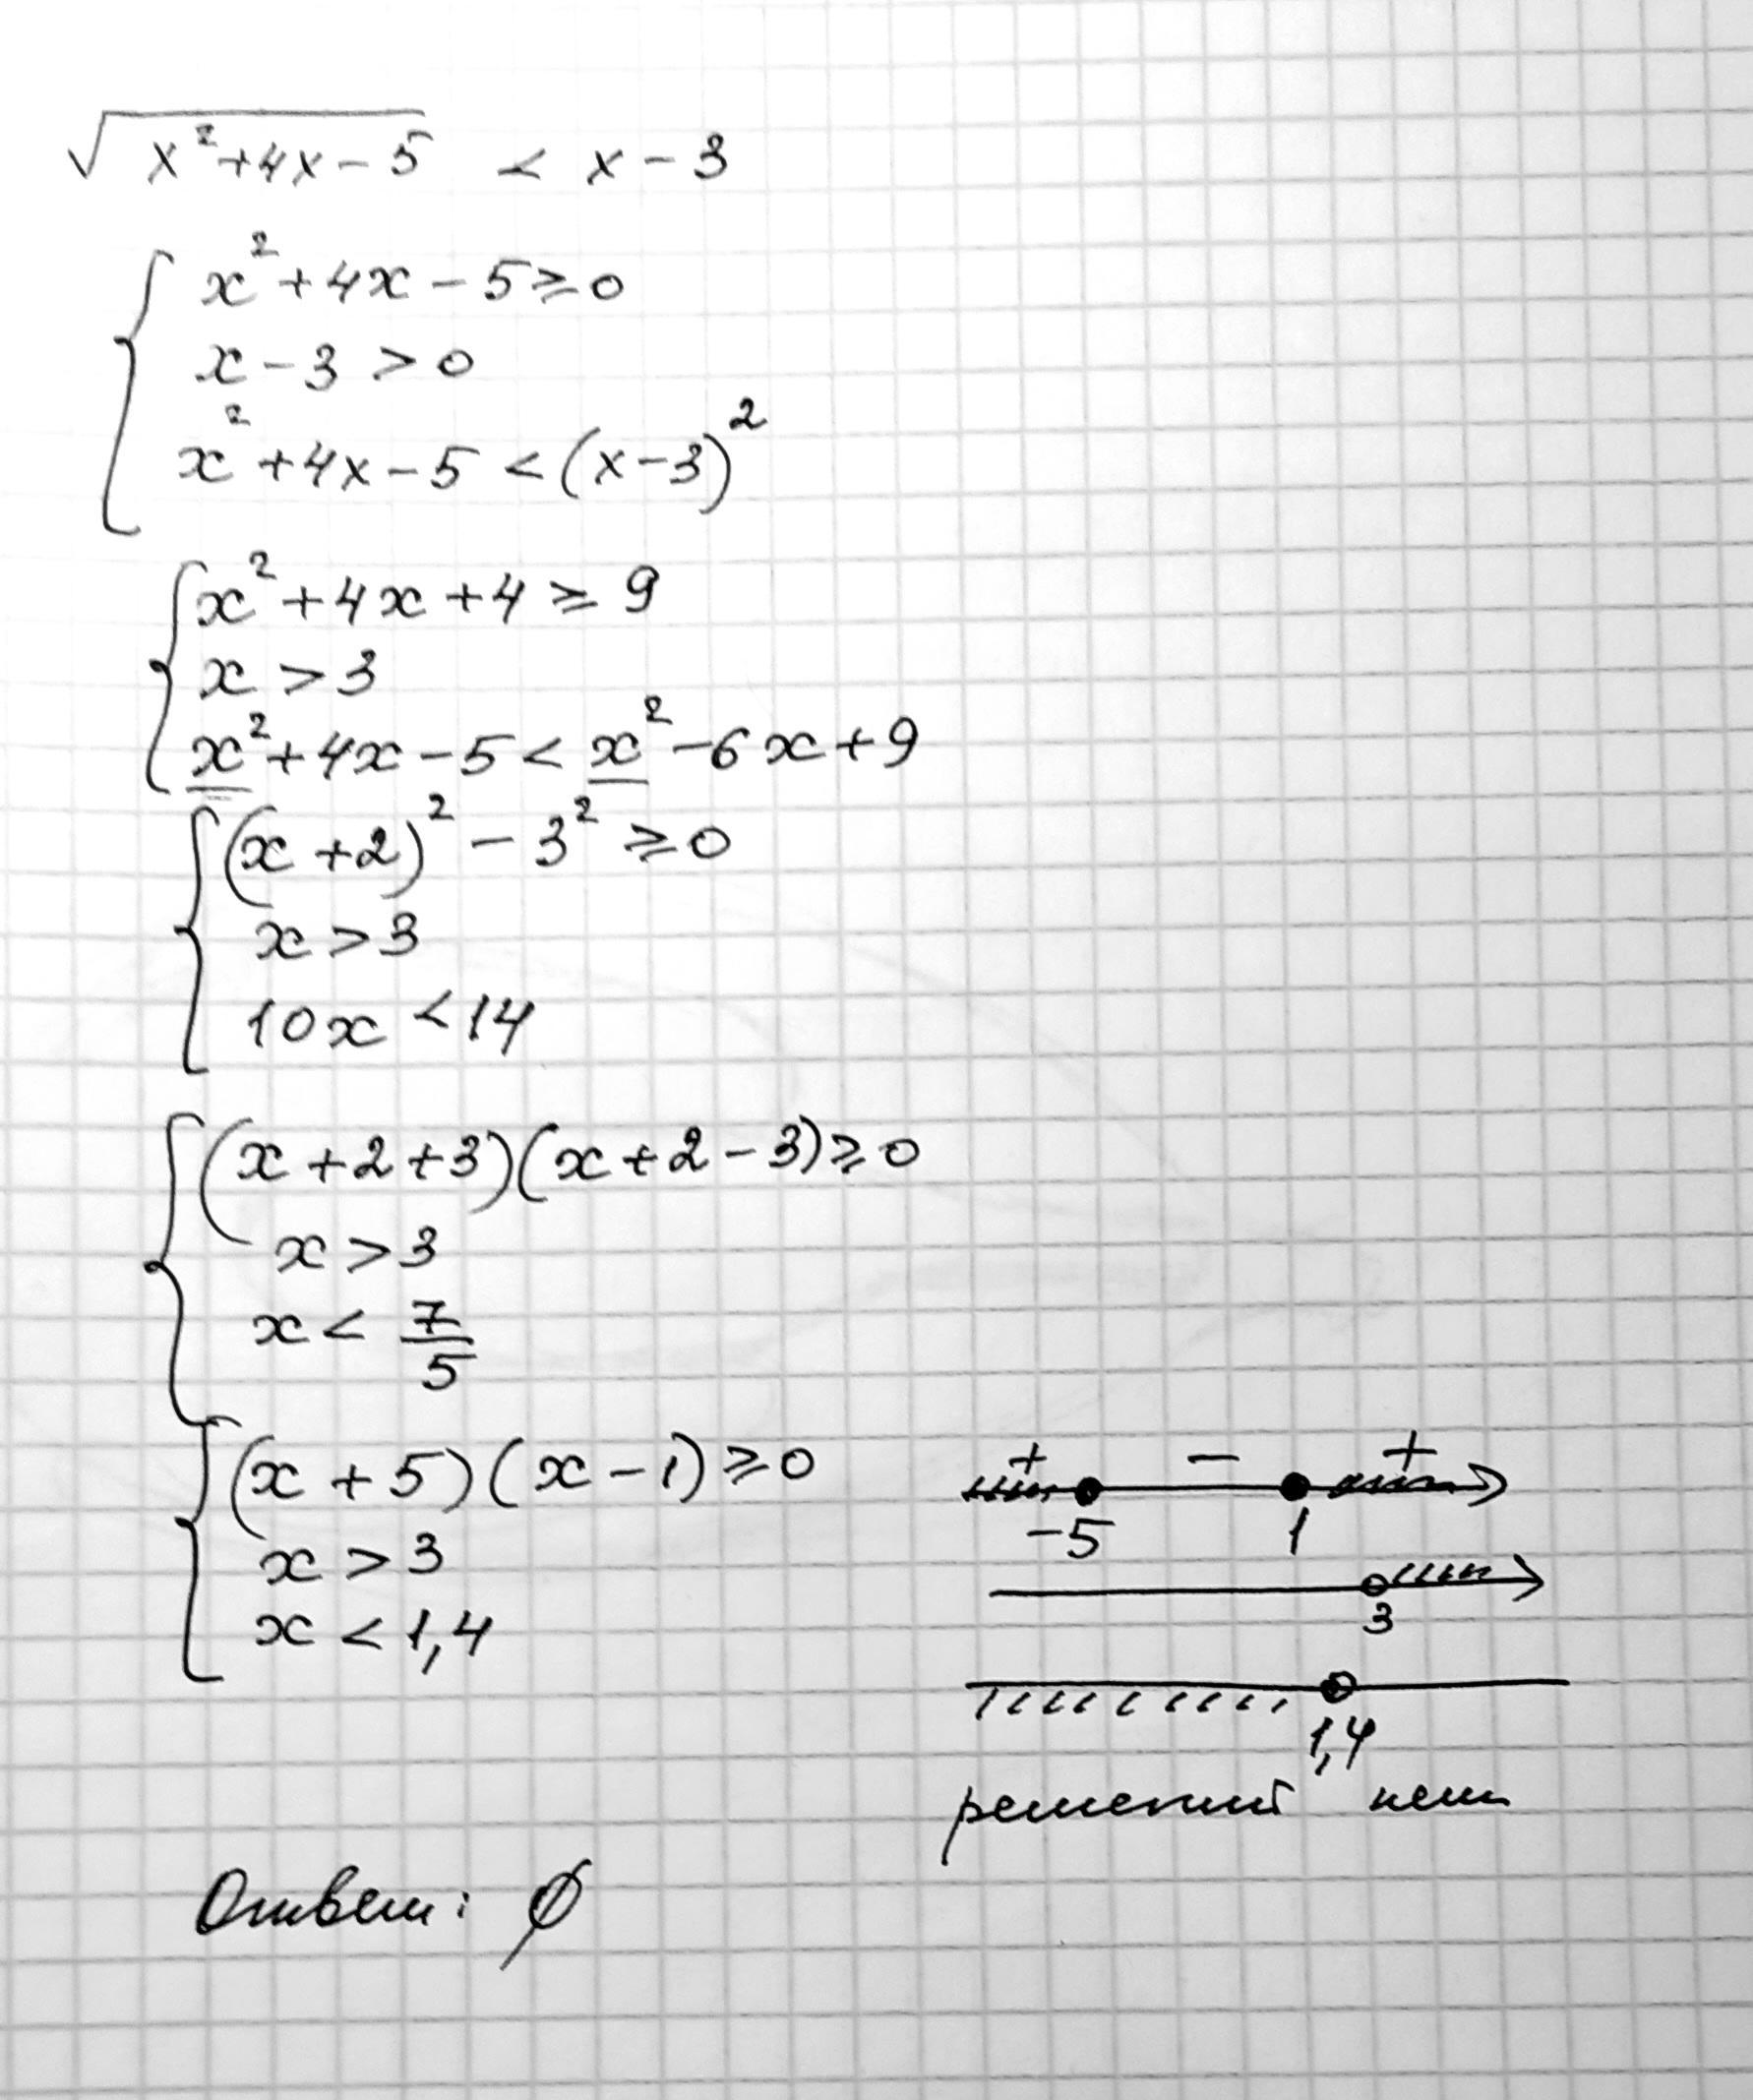 √(x²+4x-5) < x-3
x²+4x-5≥0
x-3>0
x²+4x-5<(x-3)²
x²+4x+4≥9
x>3
x²+4x-5<x²-6x+9
(x+2)²-3²≥0
x>3
10x<14
(x+2+3)(x+2-3)≥0
x>3
x<7/5
(x+5)(x-1)≥0
x>3
x<1,4
+ - +
-5 1
3
1,4
решений нет
Ответ: ∅